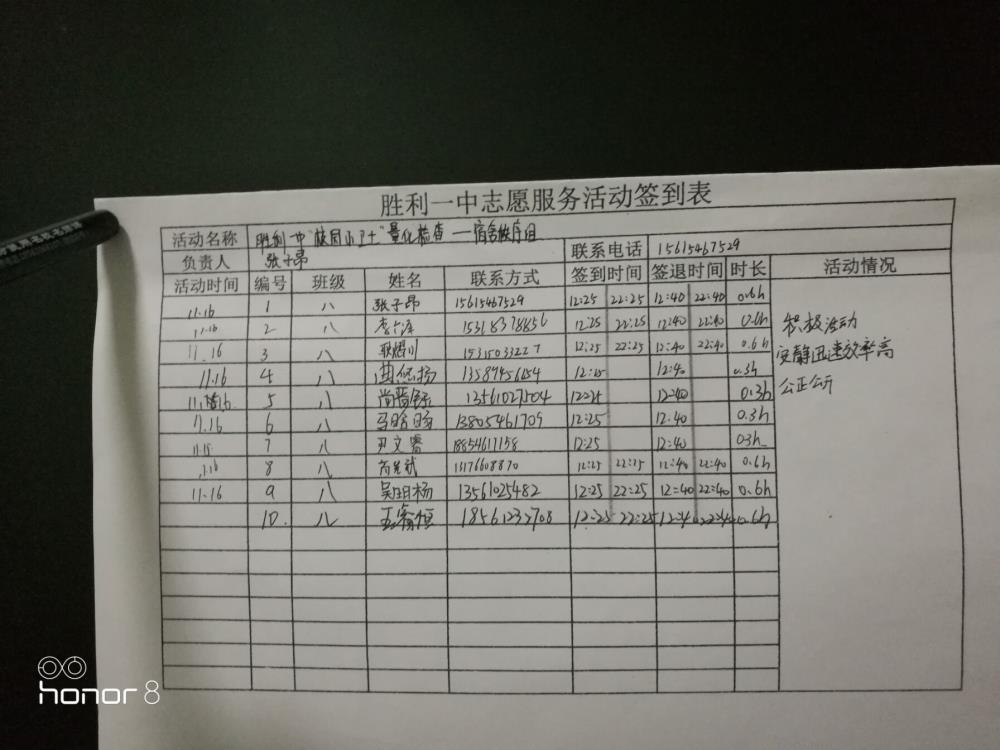 胜利一中志愿服务活动签到表
活动名称 胜利一中"校园小卫士"量化检查——宿舍秩序组
负责人 张子昂 联系电话 15615467529
活动时间 编号 班级 姓名 联系方式 签到时间 签退时间 时长 活动情况
11.16 1 八 张子昂 15615467529 12:25 22:25 12:40 22:40 0.6h
11.16 2 八 15318378856 12:25 22:25 12:40 22:40 0.6h
11.16 3 八 15315033227 12:25 22:25 12:40 22:40 0.6h
11.16 4 八 曲悠扬 13589456254 12:25 12:40 0.3h
11.16 5 八 13561027504 12:25 12:40 0.3h
11.16 6 八 13805461709 12:25 12:40 0.3h
7 八 尹文睿 18854611158 12:25 12:40 0.3h
11.16 8 八 13176608870 12:25 22:25 12:40 22:40 0.6h
11.16 9 八 杨 13561025482 12:25 22:25 12:40 22:40 0.6h
10. 八 18561232708 12:25 22:25 12:40 22:40 0.6h
积极活动
安静迅速效率高
公正公开
honor 8